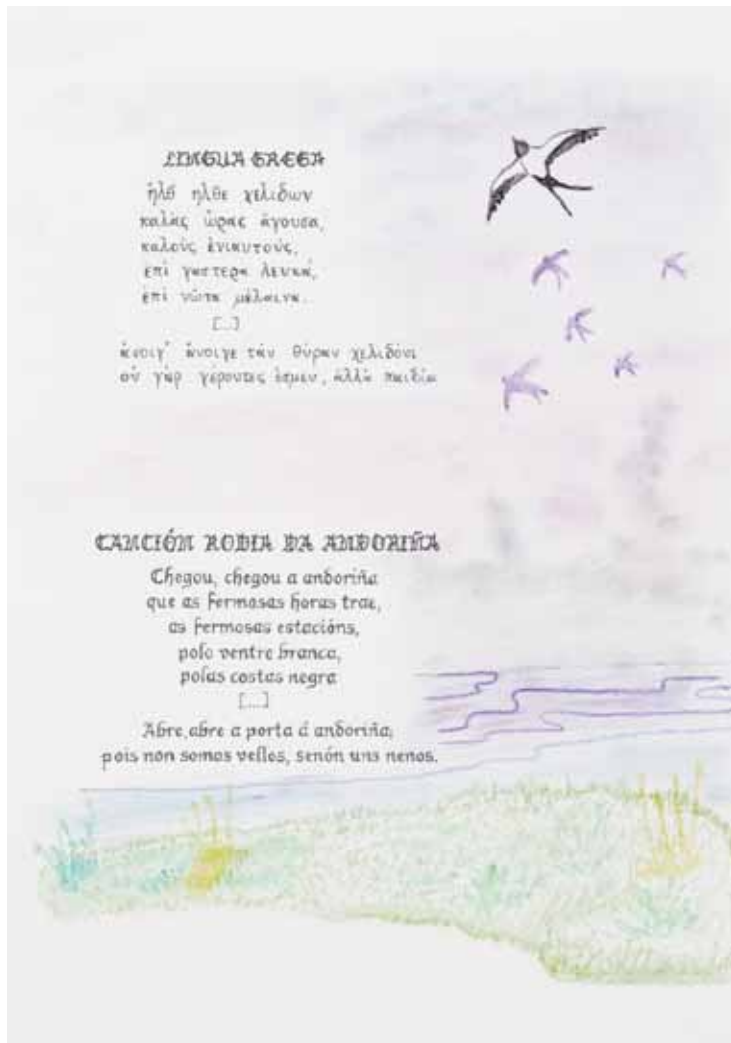 LINGUA GREGA
ἦλθ ἦλθε χελιδων
καλὰς ὥρας ἄγουσα,
καλοὺς ἐνιαυτούς,
ἐπὶ γαστερα λευκά,
ἐπὶ νῶτα μέλαινα.
[...]
ἄνοιγ' ἄνοιγε τὰν θύραν χελιδόνι
οὐ γὰρ γέροντες ἐσμεν, ἀλλὰ παιδία
CANCIÓN RODIA DA ANDORIÑA
Chegou, chegou a andoriña
que as fermosas horas trae,
as fermosas estacións,
polo ventre branca,
polas costas negra
[....]
Abre, abre a porta á andoriña,
pois non somos vellos, senón uns nenos.